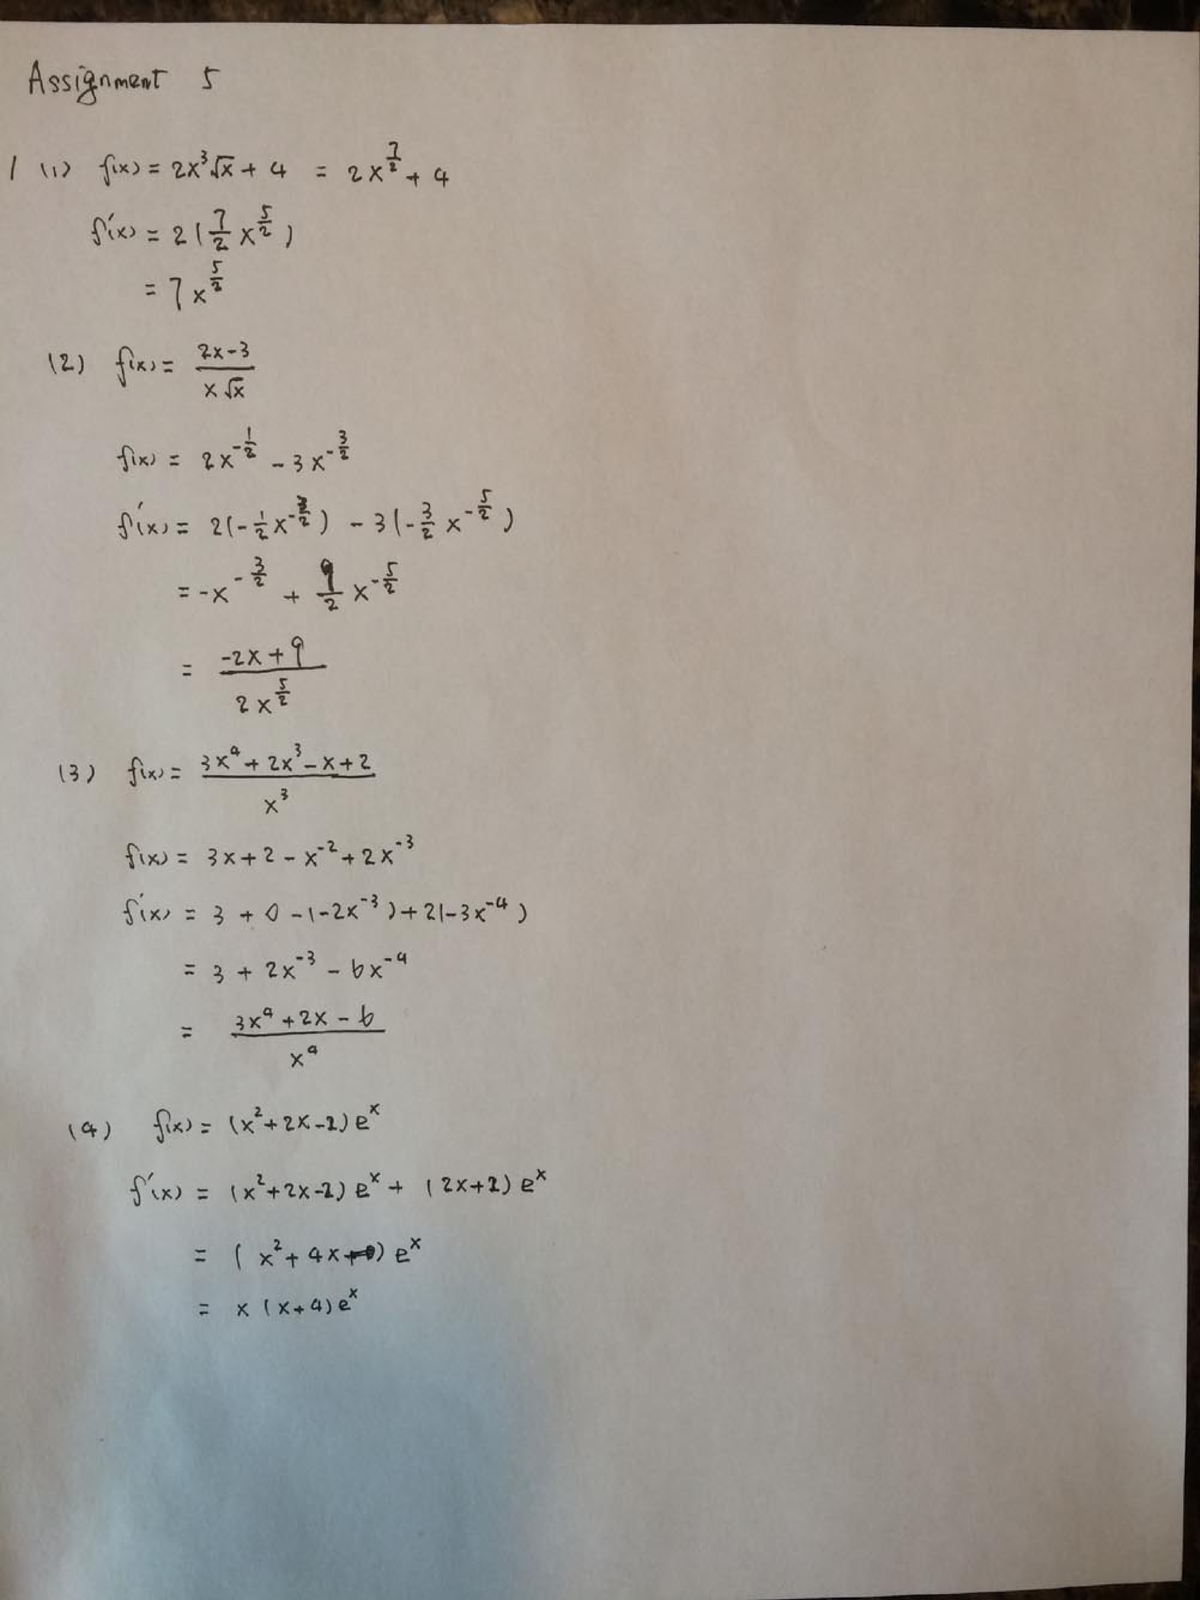 Assignment 5
1 (1) f(x) = 2x³√x + 4 = 2x^(7/2) + 4
f'(x) = 2(7/2 x^(5/2))
= 7x^(5/2)
(2) f(x) = (2x-3)/(x√x)
f(x) = 2x^(-1/2) - 3x^(-3/2)
f'(x) = 2(-1/2 x^(-3/2)) - 3(-3/2 x^(-5/2))
= -x^(-3/2) + 9/2 x^(-5/2)
= (-2x+9)/(2x^(5/2))
(3) f(x) = (3x⁴+2x³-x+2)/x³
f(x) = 3x+2-x⁻²+2x⁻³
f'(x) = 3+0-(-2x⁻³)+2(-3x⁻⁴)
= 3+2x⁻³-6x⁻⁴
= (3x⁴+2x-6)/x⁴
(4) f(x) = (x²+2x-2)eˣ
f'(x) = (x²+2x-2)eˣ + (2x+2)eˣ
= (x²+4x)eˣ
= x(x+4)eˣ